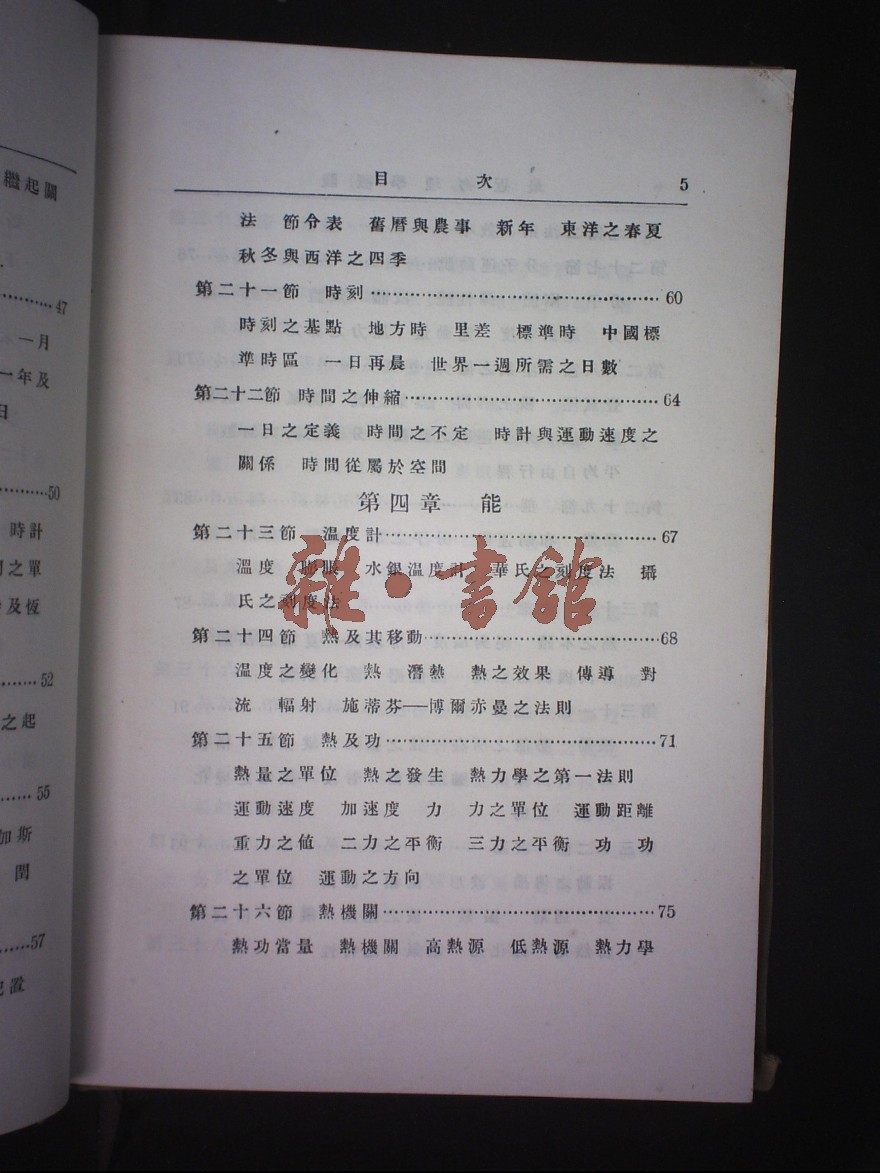 目次 5
法 節令表 舊曆與農事 新年 東洋之春夏
秋冬與西洋之四季
第二十一節 時刻……60
時刻之基點 地方時 里差 標準時 中國標
準時區 一日再晨 世界一週所需之日數
第二十二節 時間之伸縮……64
一日之定義 時間之不定 時計與運動速度之
關係 時間從屬於空間
第四章 能
第二十三節 溫度計……67
溫度 膨脹 水銀溫度計 華氏之刻度法 攝
氏之刻度法
第二十四節 熱及其移動……68
溫度之變化 熱 潛熱 熱之效果 傳導 對
流 輻射 施蒂芬——博爾亦曼之法則
第二十五節 熱及功……71
熱量之單位 熱之發生 熱力學之第一法則
運動速度 加速度 力 力之單位 運動距離
重力之値 二力之平衡 三力之平衡 功 功
之單位 運動之方向
第二十六節 熱機關……75
熱功當量 熱機關 高熱源 低熱源 熱力學
雜·書館
繼起關
47
一月
一年及
日
50
時計
之單
及恆
52
之起
55
加斯
閏
57
置